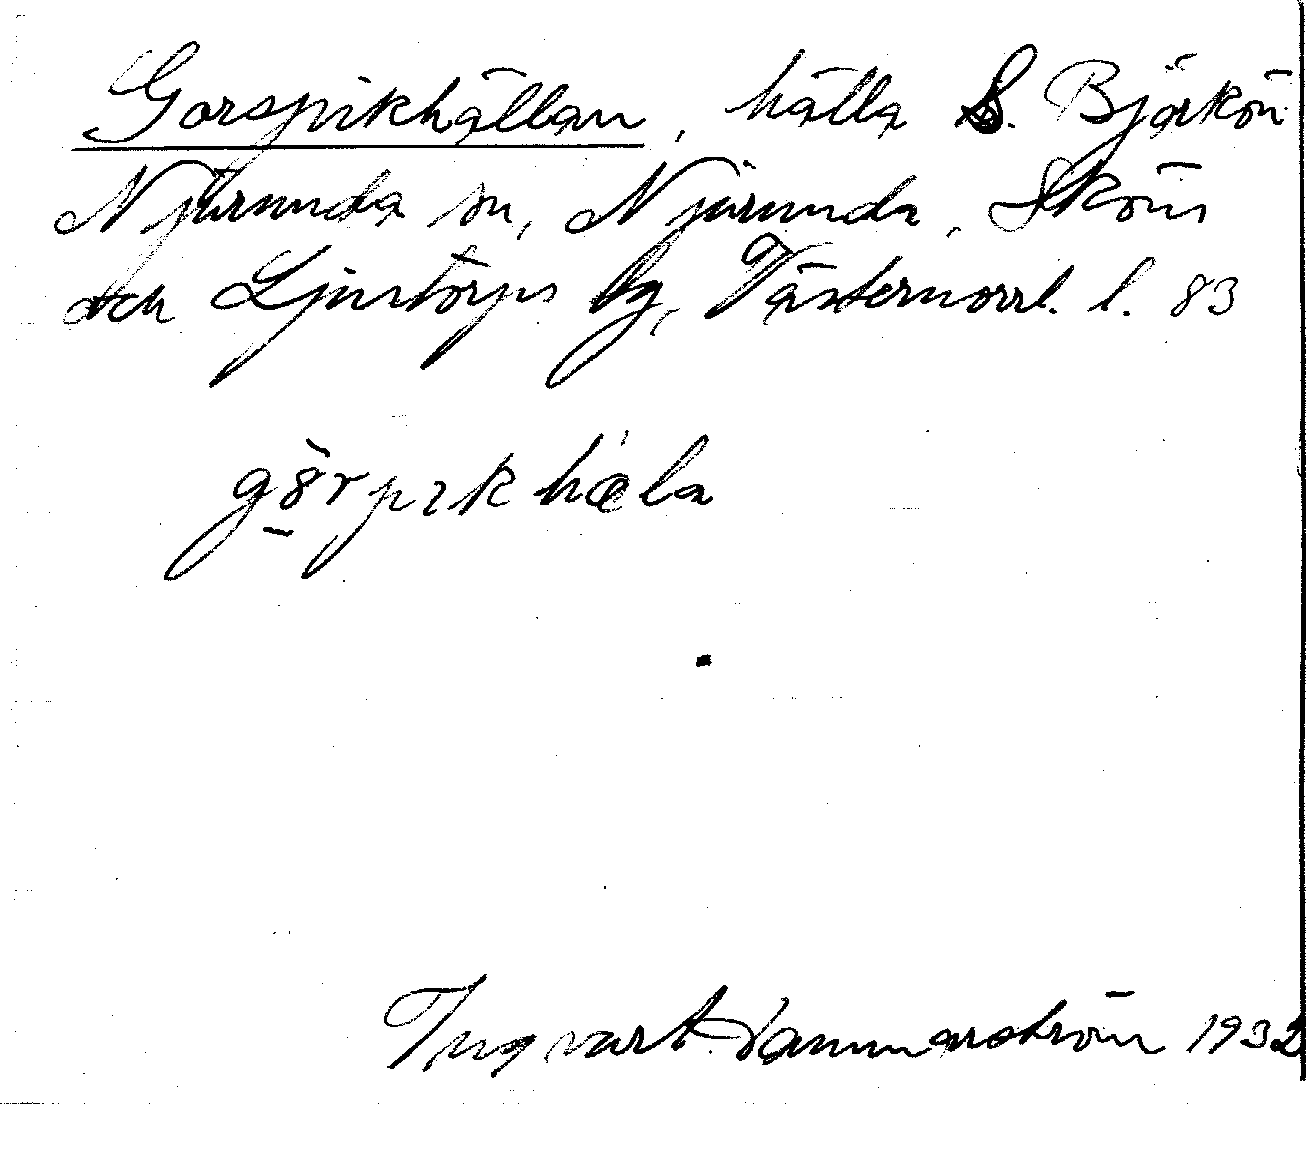 Gorspikhällan, hälla S. Björkön
Njurunda sn, Njurunda, Sköns
och Ljustorps tg, Västernorrl. l. 83
görpikhæla
Ingvart Hammarström 1932